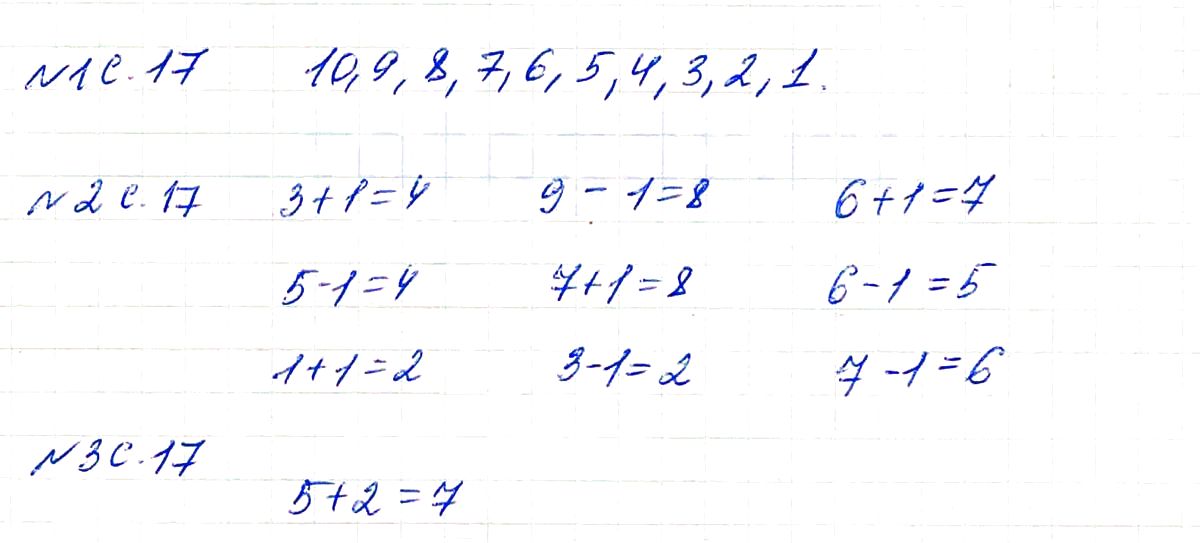 №1 с. 17 10, 9, 8, 7, 6, 5, 4, 3, 2, 1.
№2 с. 17 3+1=4 9-1=8 6+1=7
5-1=4 7+1=8 6-1=5
1+1=2 3-1=2 7-1=6
№3 с. 17
5+2=7